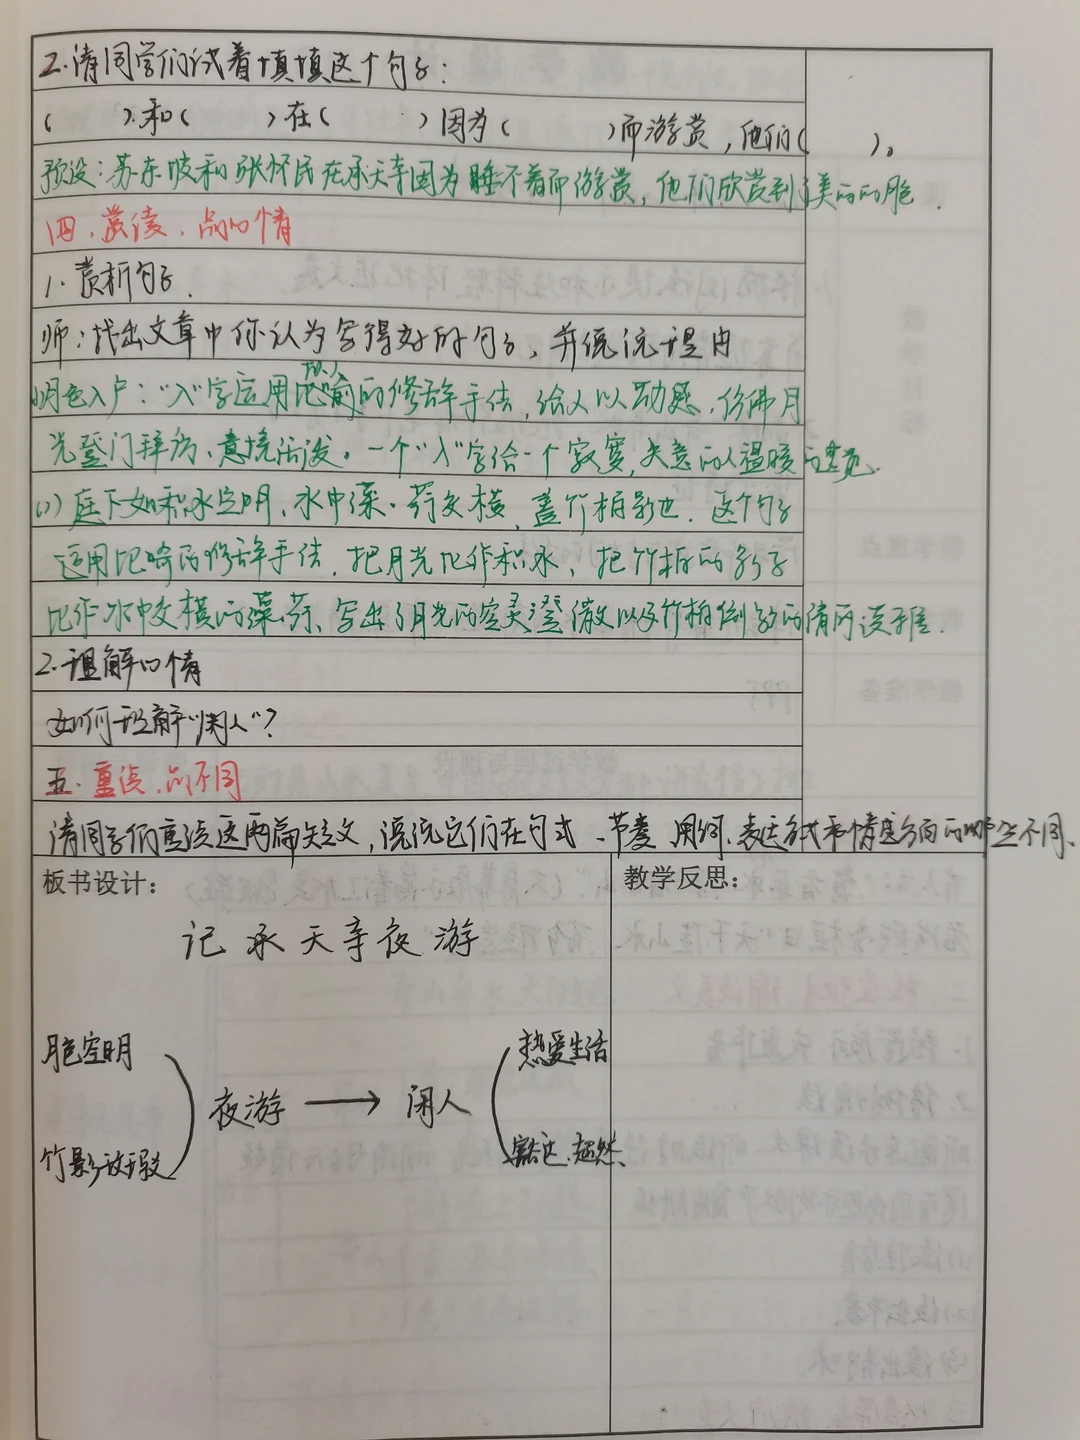 2.请同学们试着填填这个句子：
（　　）和（　　）在（　　）因为（　　）而游赏，他们（　　）。
预设：苏东坡和张怀民在承天寺因为睡不着而游赏，他们欣赏到了美丽的月色.
四、赏读、品心情
1.赏析句子.
师：找出文章中你认为写得好的句子，并说说理由
(1)月色入户："入"字运用拟人的修辞手法，给人以动感，仿佛月
光登门拜访、意境活泼。一个"入"字给一个寂寞，失意的人温暖的
(2)庭下如积水空明，水中藻、荇交横，盖竹柏影也．这个句子
运用比喻的修辞手法．把月光比作积水，把竹柏的影子
比作水中交横的藻荇、写出了月光的空灵澄澈以及竹柏倒影的清丽淡雅.
2.理解心情
如何理解"闲人"？
五.重读.品不同
请同学们重读这两篇短文，说说它们在句式、节奏、用词、表达方式和情感方面的哪些不同、
板书设计：
教学反思：
记承天寺夜游
月色空明
竹影
夜游 → 闲人
热爱生活
豁达、超然、